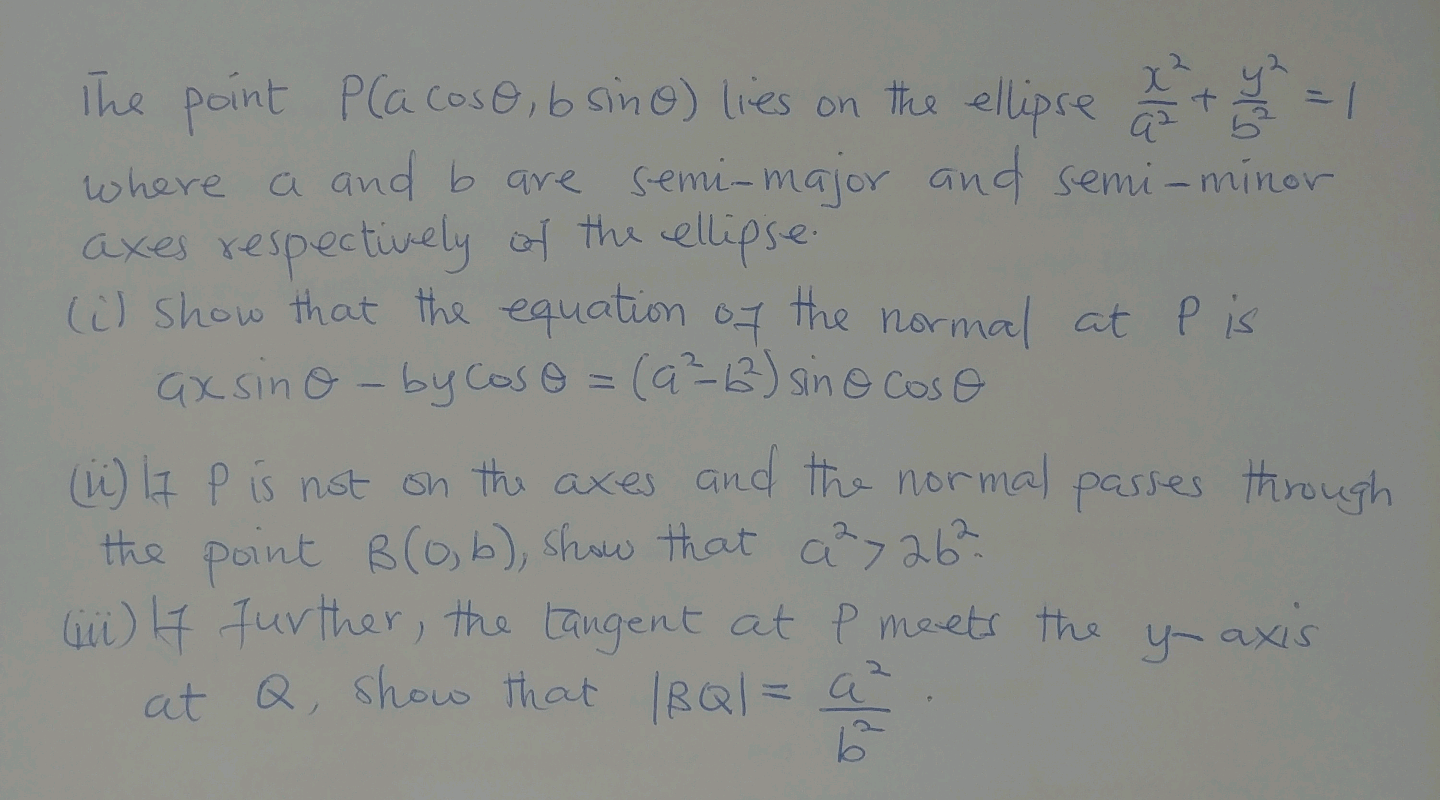 The point P(a cosθ, b sinθ) lies on the ellipse x²/a² + y²/b² = 1
where a and b are semi-major and semi-minor
axes respectively of the ellipse.
(i) Show that the equation of the normal at P is
ax sinθ - by cosθ = (a²-b²) sinθ cosθ
(ii) If P is not on the axes and the normal passes through
the point B(0,b), show that a² > 2b².
(iii) If further, the tangent at P meets the y-axis
at Q, show that |BQ| = a²/b².